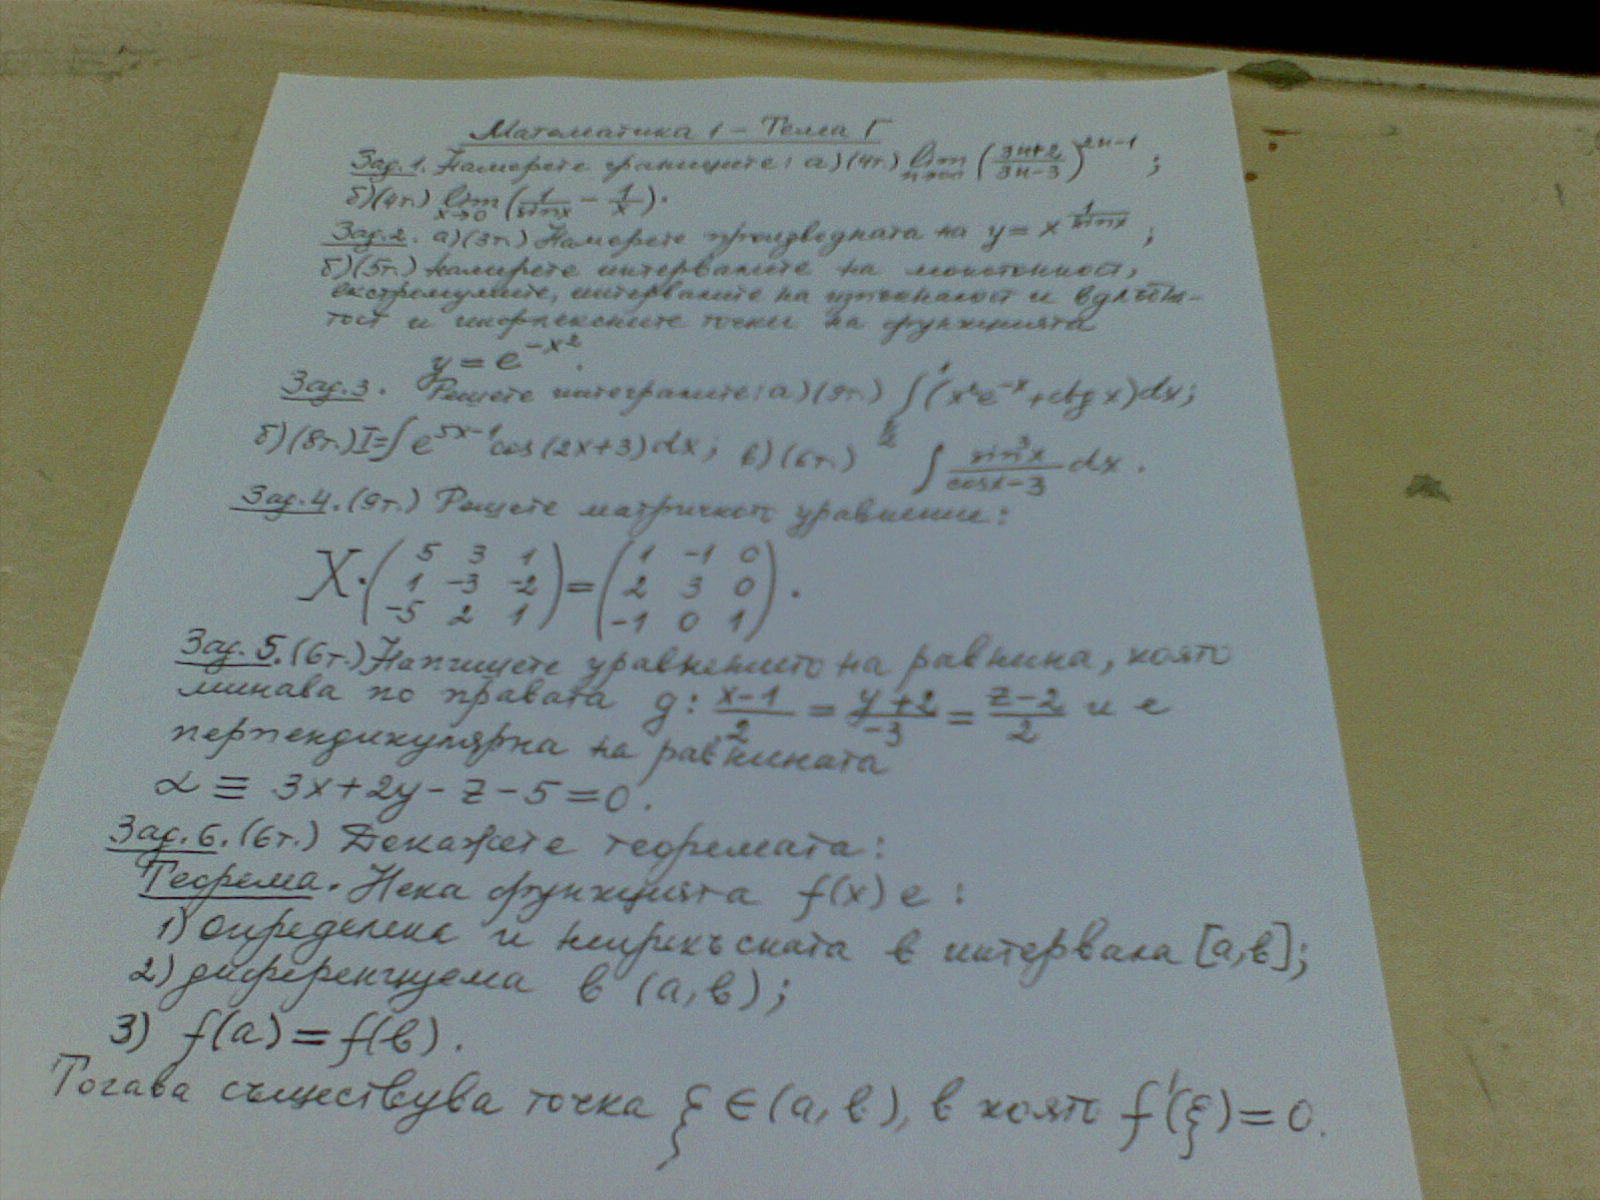 Математика 1 – Тема Г
Зад. 1. Намерете границите: а) (4т.) lim n→∞ ((3n+2)/(3n-3))^(2n-1) ;
б) (4т.) lim x→0 (1/sinx – 1/x).
Зад. 2. а) (3т.) Намерете производната на y = x^(1/sinx) ;
б) (5т.) Намерете интервалите на монотонност,
екстремумите, интервалите на изпъкналост и вдлъбна-
тост и инфлексните точки на функцията
y = e^(-x²).
Зад. 3. Решете интегралите: а) (9т.) ∫(x²e^(-x) + cotg x)dx;
б) (8т.) I=∫ e^(5x-1) cos (2x+3) dx; в) (6т.) ∫ sin³x/(cosx-3) dx.
Зад. 4. (9т.) Решете матричното уравнение:
X · ( 5 3 1 ) = ( 1 -1 0 ) .
1 -3 -2 2 3 0
-5 2 1 -1 0 1
Зад. 5. (6т.) Напишете уравнението на равнина, която
минава по правата g: (x-1)/2 = (y+2)/-3 = (z-2)/2 и е
перпендикулярна на равнината
α ≡ 3x+2y-z-5=0.
Зад. 6. (6т.) Докажете теоремата:
Теорема. Нека функцията f(x) е :
1) определена и непрекъсната в интервала [a,b];
2) диференцируема в (a,b);
3) f(a) = f(b).
Тогава съществува точка ξ ∈ (a,b), в която f'(ξ) = 0.